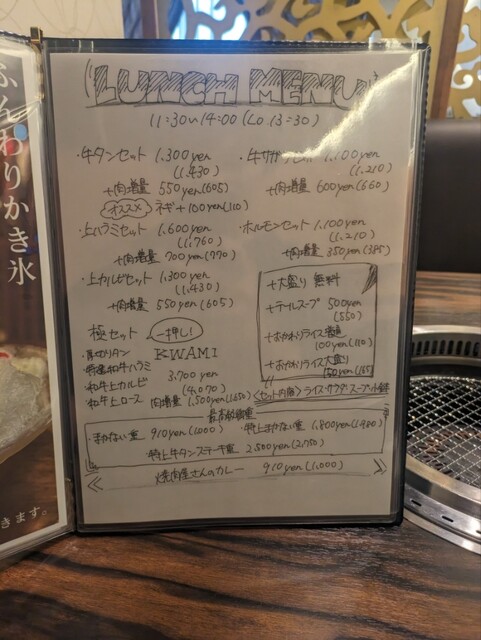 ふんわりかき氷
きます。
LUNCH MENU
11:30〜14:00 (L.o 13:30)
・牛タンセット 1,300yen
(1,430)
+肉増量 550yen(605)
オススメ ネギ+100yen(110)
・上ハラミセット 1,600yen
(1,760)
+肉増量 700yen(770)
・上カルビセット 1,300yen
(1,430)
+肉増量 550yen(605)
極セット 一押し!
・厚切りタン KIWAMI
・特選和牛ハラミ 3,700yen
・和牛上カルビ (4,070)
・和牛上ロース 肉増量 1,500yen(1,650)
・牛サガリセット 1,100yen
(1,210)
+肉増量 600yen(660)
・ホルモンセット 1,100yen
(1,210)
+肉増量 350yen(385)
+大盛り 無料
+テールスープ 500yen
(550)
+おかわりライス普通
100yen(110)
+おかわりライス大盛り
150yen(165)
<セット内容>ライス・サラダ・スープ・小鉢
・まかない重 910yen(1,000) ・特上まかない重 1,800yen(1,980)
・特上牛タンステーキ重 2,500yen(2,750)
焼肉屋さんのカレー 910yen(1,000)